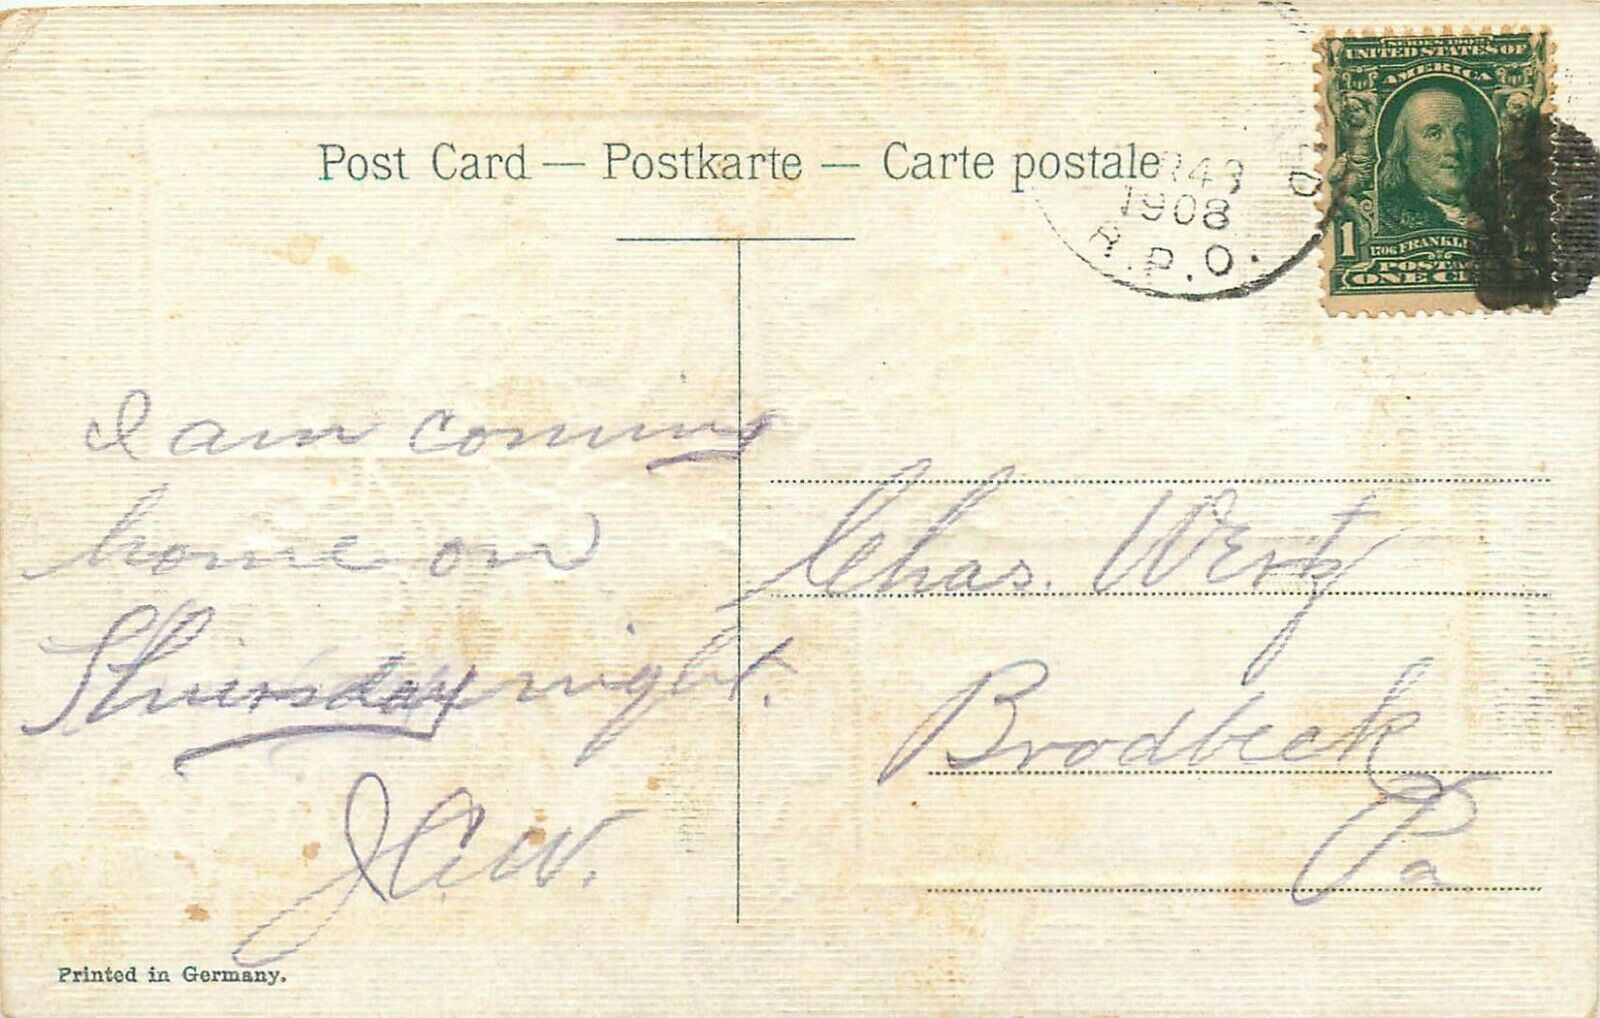 Post Card — Postkarte — Carte postale
1908
R.P.O.
SERIES 1902
UNITED STATES OF
AMERICA
1
1706 FRANKLIN
POSTAGE
ONE
I am coming
home on
Thursday night.
J.C.W.
Chas. Wertz
Brodbeck
Pa
Printed in Germany.